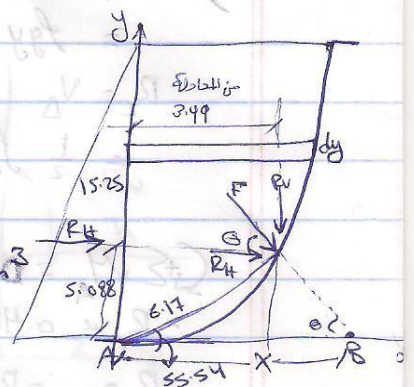 y
من المعادلة
3.49
dy
15.25
F Rv
RH θ
3 RH
5.088
6.17 θ
A x B
55.54